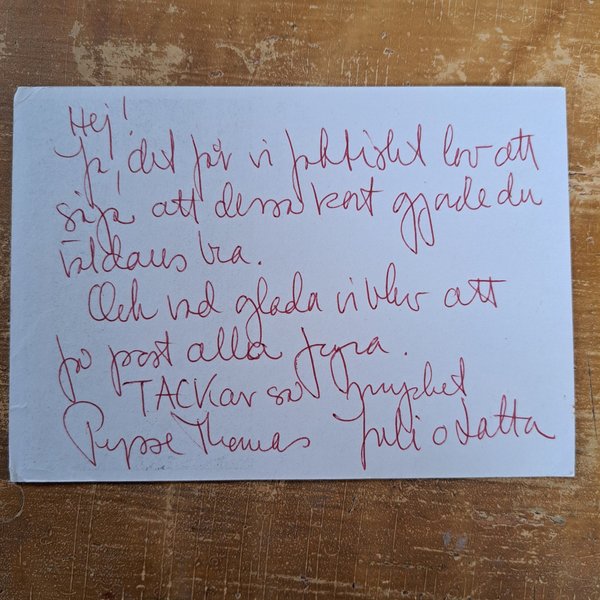 Hej!
Ja, det får vi faktiskt lov att
säja att dessa kort gjorde du
väldans bra.
Och vad glada vi blev att
få post alla fyra.
TACKar så mycket
Thomas Juli o Latta